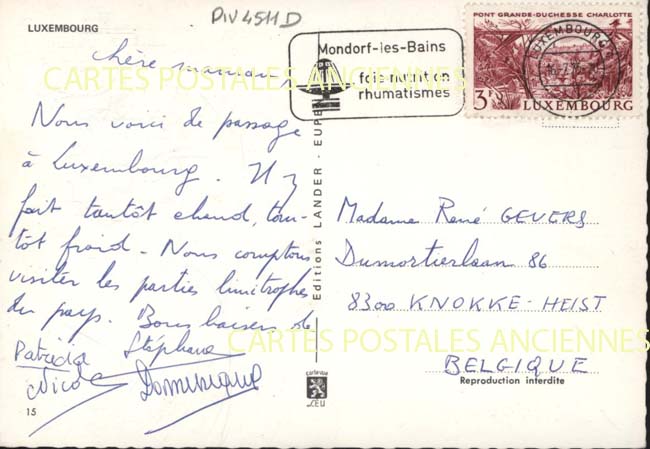 DIV 4511 D
LUXEMBOURG
chère maman,
Nous voici de passage
à Luxembourg. Il y
fait tantôt chaud, tan-
tôt froid - Nous comptons
visiter les parties limitrophes
du pays. Bons baisers de
Patricia Stéphane
Nicole Dominique
15
Editions LANDER - EUPEN
Mondorf-les-Bains
foie nutrition
rhumatismes
PONT GRANDE-DUCHESSE CHARLOTTE
LUXEMBOURG
3F LUXEMBOURG
Madame René GEVERS
Dumortierlaan 86
8300 KNOKKE-HEIST
BELGIQUE
Reproduction interdite
CARTES POSTALES ANCIENNES
CARTES POSTALES ANCIENNES